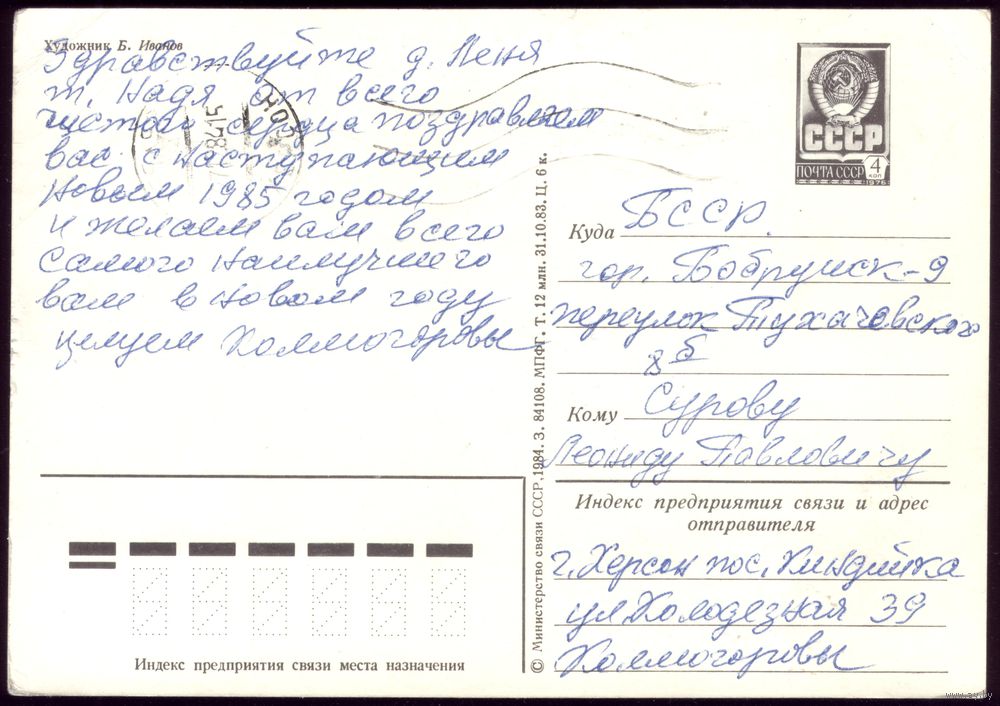 Художник Б. Иванов
Здравствуйте д. Леня
т. Надя от всего
чистого сердца поздравляем
вас с наступающим
Новым 1985 годом
и желаем вам всего
самого наилучшего
вам в новом году
целуем Холмогоровы
СССР
ПОЧТА СССР
4
КОП
1976
Куда БССР.
гор. Бобруйск-9
переулок Тухачевского
8 б
Кому Сурову
Леониду Павловичу
Индекс предприятия связи и адрес
отправителя
г. Херсон пос. Киндийка
ул Холодезная 39
Холмогоровы
Индекс предприятия связи места назначения
© Министерство связи СССР, 1984. З. 84108. МПФГ. Т. 12 млн. 31.10.83. Ц. 6 к.